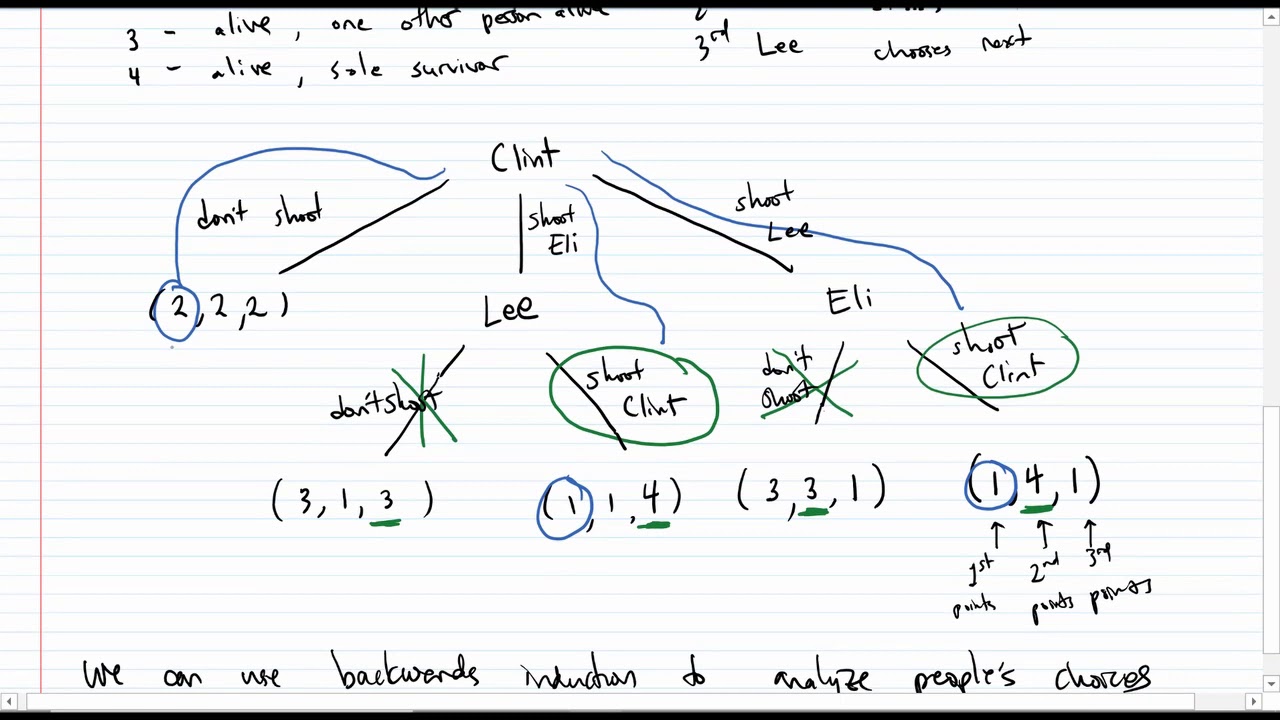 3 - alive, one other person alive
4 - alive, sole survivor
3rd Lee chooses next
Clint
don't shoot
shoot
Eli
shoot
Lee
(2,2,2)
Lee
Eli
don't shoot
shoot
Clint
don't
shoot
shoot
Clint
(3,1,3)
(1,1,4)
(3,3,1)
(1,4,1)
1st
points
2nd
points
3rd
points
We can use backwards induction to analyze people's choices